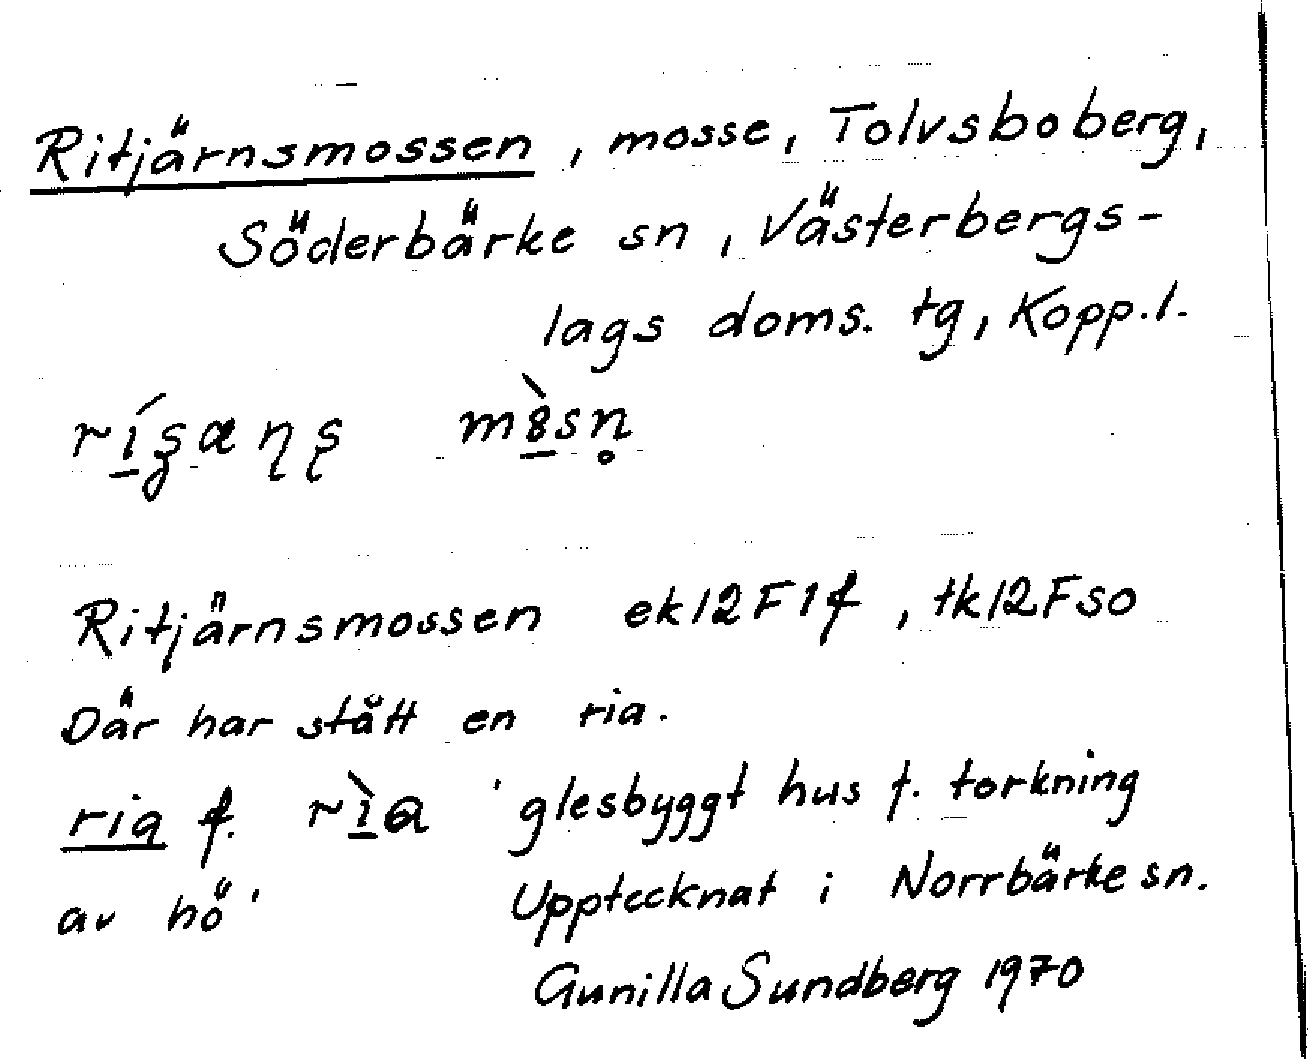 Ritjärnsmossen, mosse, Tolvsboberg,
Söderbärke sn, Västerbergs-
lags doms. tg, Kopp.l.
Ritjärnsmossen ek12F1f, tk12Fso
Där har stått en ria.
ria f. rìa 'glesbyggt hus f. torkning
av hö' Upptecknat i Norrbärke sn.
Gunilla Sundberg 1970